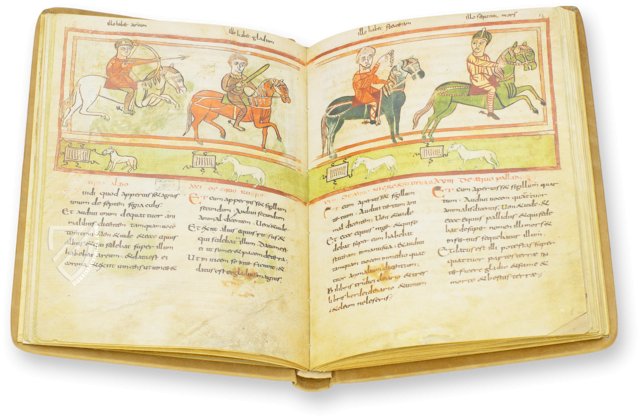 ille habet arcum
ille habet gladium
ille habet stateram
XVI. De equo
uidi quod aperuisset agnus
unum de septem signaculis
Et audiui unum de quattuor ani
malibus dicentem tamquam uocem
tonitrui Ueni & uide & ecce equus
albus & qui sedebat super illum
habebat arcum & data est ei
corona & exiuit uincens ut uincer&
Et cum aperuisset sigillum
secundum Audiui secundum
animal dicentem Ueni & uide
Et exiit alius equus rufus &
qui sedebat super illum Datum est
ei ut sumer& pacem de terra
Ut inuicem se interficiant &
datus est ei gladius magnus
Et cum aperuisset sigillum
tertium Audiui tertium animal
dicentem Ueni & uide
Et ecce equus niger & qui se
debat super eum habebat
stateram in manu sua & audiui
tamquam uocem in medio quattuor
animalium dicentem
Bilibris tritici denario & tres
bilibres hordei denario & uinum
& oleum ne leseris
XVIII. De equo pallido
Et cum aperuisset sigillum quar
tum Audiui uocem quarti
animalis dicentis Ueni & uide
Et ecce equus pallidus & qui sede
bat desuper nomen illi mors &
inferus sequebatur illum
Et data est illi potestas super
quattuor partes terrae in
terficere gladio & fame &
morte & bestiis terrae